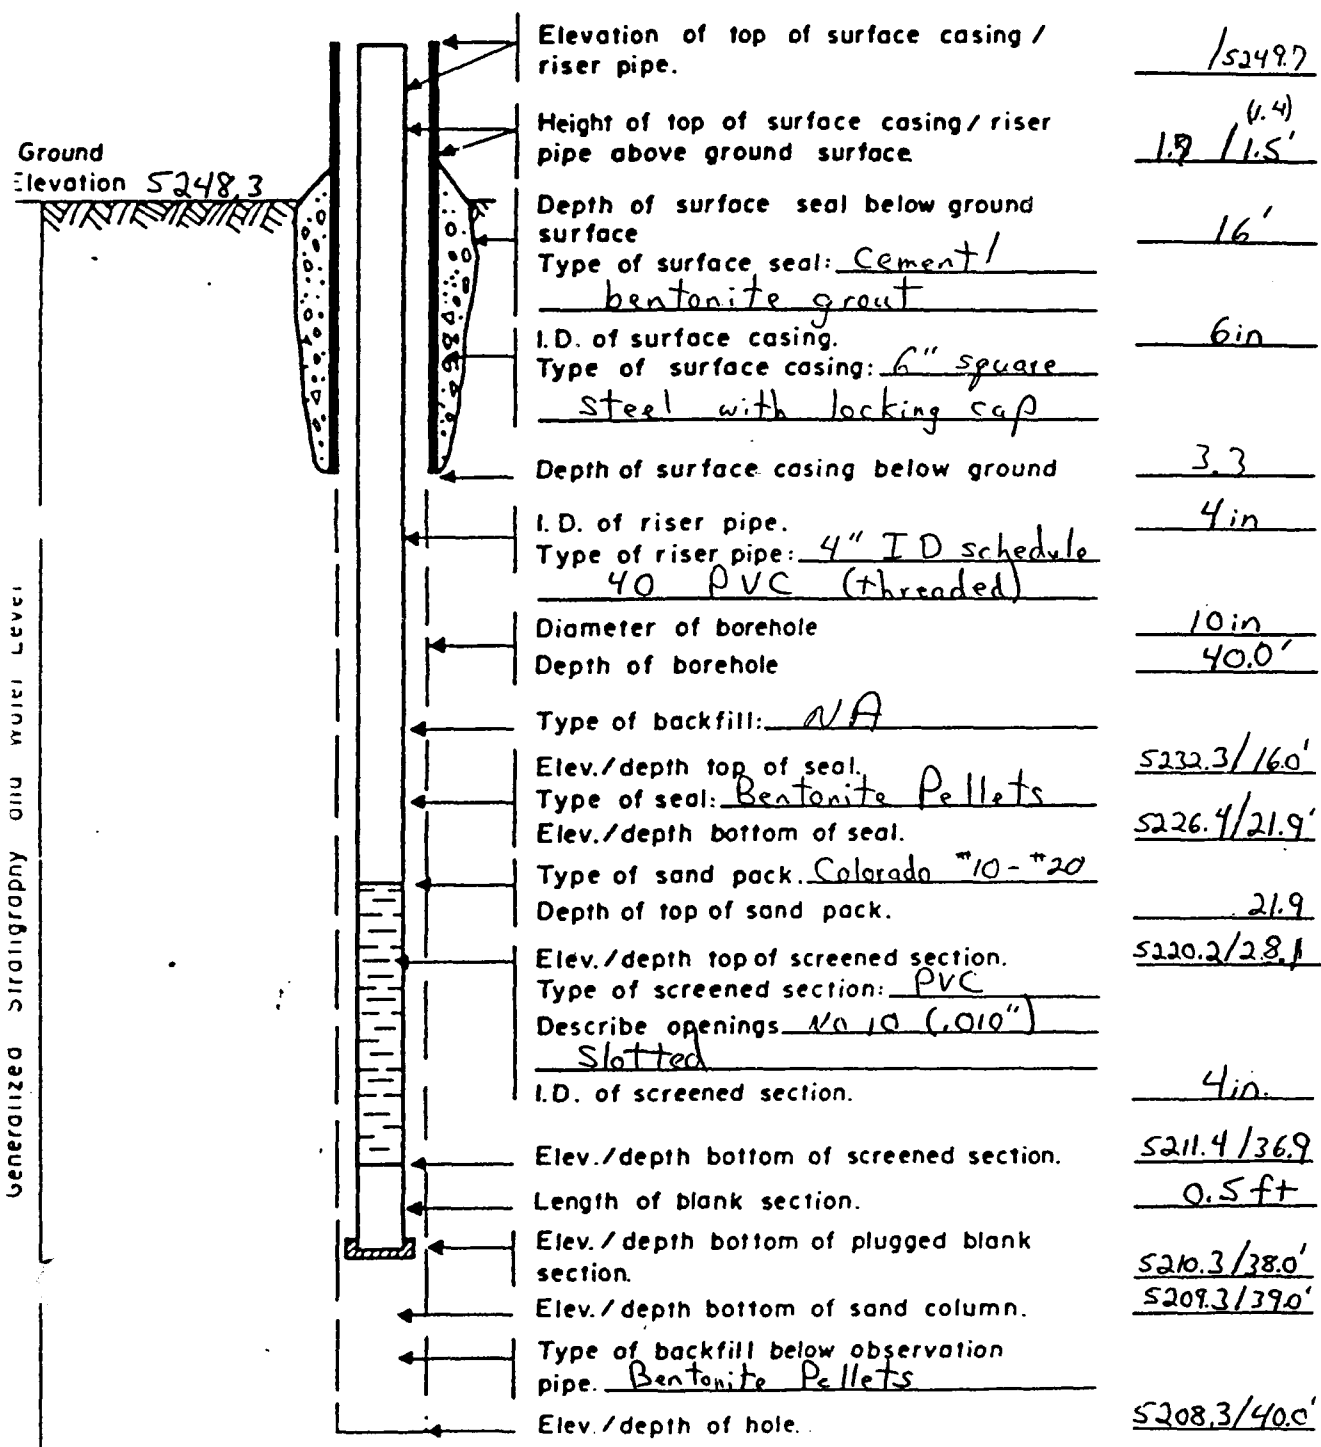 Elevation of top of surface casing /
riser pipe. /5249.7
(1.4)
Height of top of surface casing / riser
pipe above ground surface / 1.5'
Ground
Elevation 5248.3
Depth of surface seal below ground
surface 16'
Type of surface seal: Cement/
bentonite grout
I.D. of surface casing. 6in
Type of surface casing: 6" square
steel with locking cap
Depth of surface casing below ground 3.3
I.D. of riser pipe. 4in
Type of riser pipe: 4" ID schedule
40 PVC (threaded)
Diameter of borehole 10in
Depth of borehole 40.0'
Type of backfill: NA
Elev./depth top of seal. 5232.3/16.0'
Type of seal: Bentonite Pellets
Elev./depth bottom of seal. 5226.4/21.9'
Type of sand pack. Colorado #10-#20
Depth of top of sand pack. 21.9
Elev./depth top of screened section. 5220.2/28.1
Type of screened section: PVC
Describe openings No 10 (.010")
Slotted
I.D. of screened section. 4in.
Elev./depth bottom of screened section. 5211.4/36.9
Length of blank section. 0.5 ft
Elev./depth bottom of plugged blank
section. 5210.3/38.0'
Elev./depth bottom of sand column. 5209.3/39.0'
Type of backfill below observation
pipe. Bentonite Pellets
Elev./depth of hole. 5208.3/40.0'
Generalized Stratigraphy and Water Level